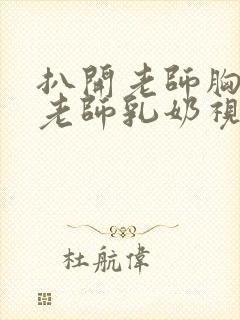 扒開老師胸
老師乳奶視
杜航偉